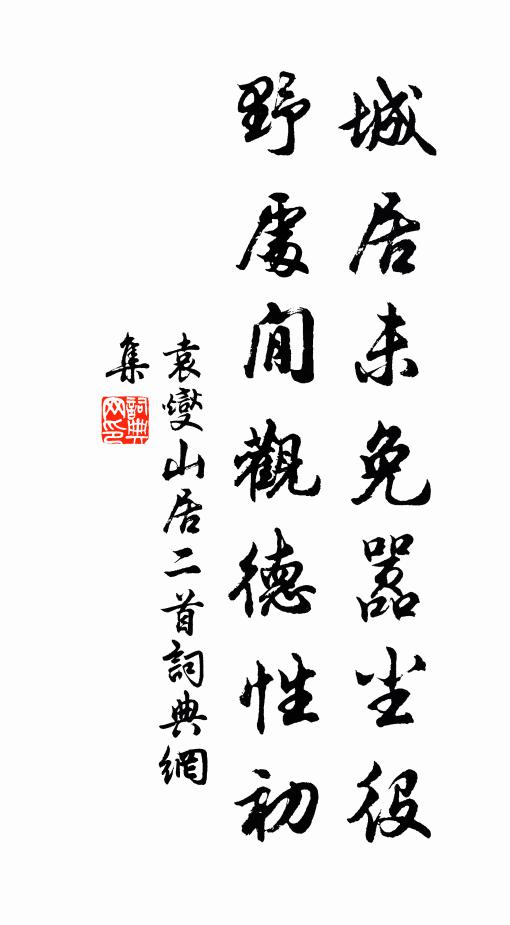 城居未免嚣尘役
野處閒觀德性初
袁燮山居二首詞典網
集
詞典
网印